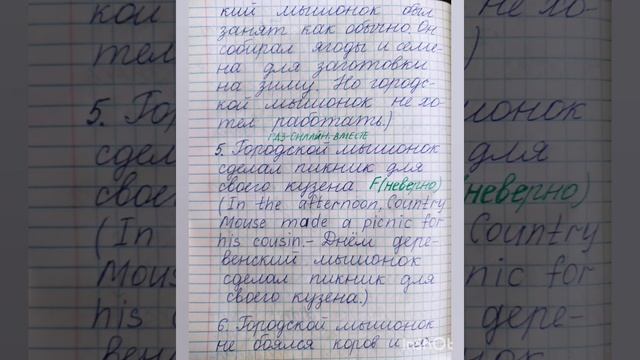 кий мышонок был
занят как обычно. Он
собирал ягоды и семе-
на для заготовки
на зиму. Но городс-
кой мышонок не хо-
тел работать.)
ГДЗ-ОНЛАЙН. ВМЕСТЕ
5. Городской мышонок
сделал пикник для
своего кузена F(неверно)
(In the afternoon, Country
Mouse made a picnic for
his cousin.- Днём дере-
венский мышонок
сделал пикник для
своего кузена.)
6. Городской мышонок
не боялся коров и